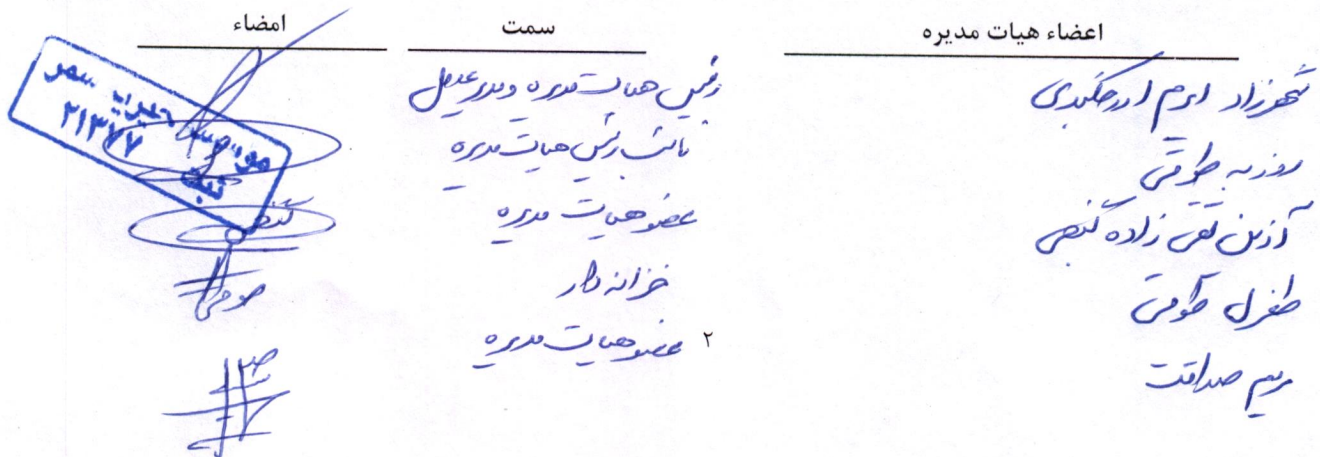 اعضاء هیات مدیره سمت امضاء
شهرزاد رئیس هیات مدیره و مدیرعامل
روزبه طوقی نائب رئیس هیات مدیره
آذین تقی زاده عضو هیات مدیره
طغرل طوقی خزانه دار
مریم صداقت ۲ عضو هیات مدیره
ثبت ۲۱۳۷۷